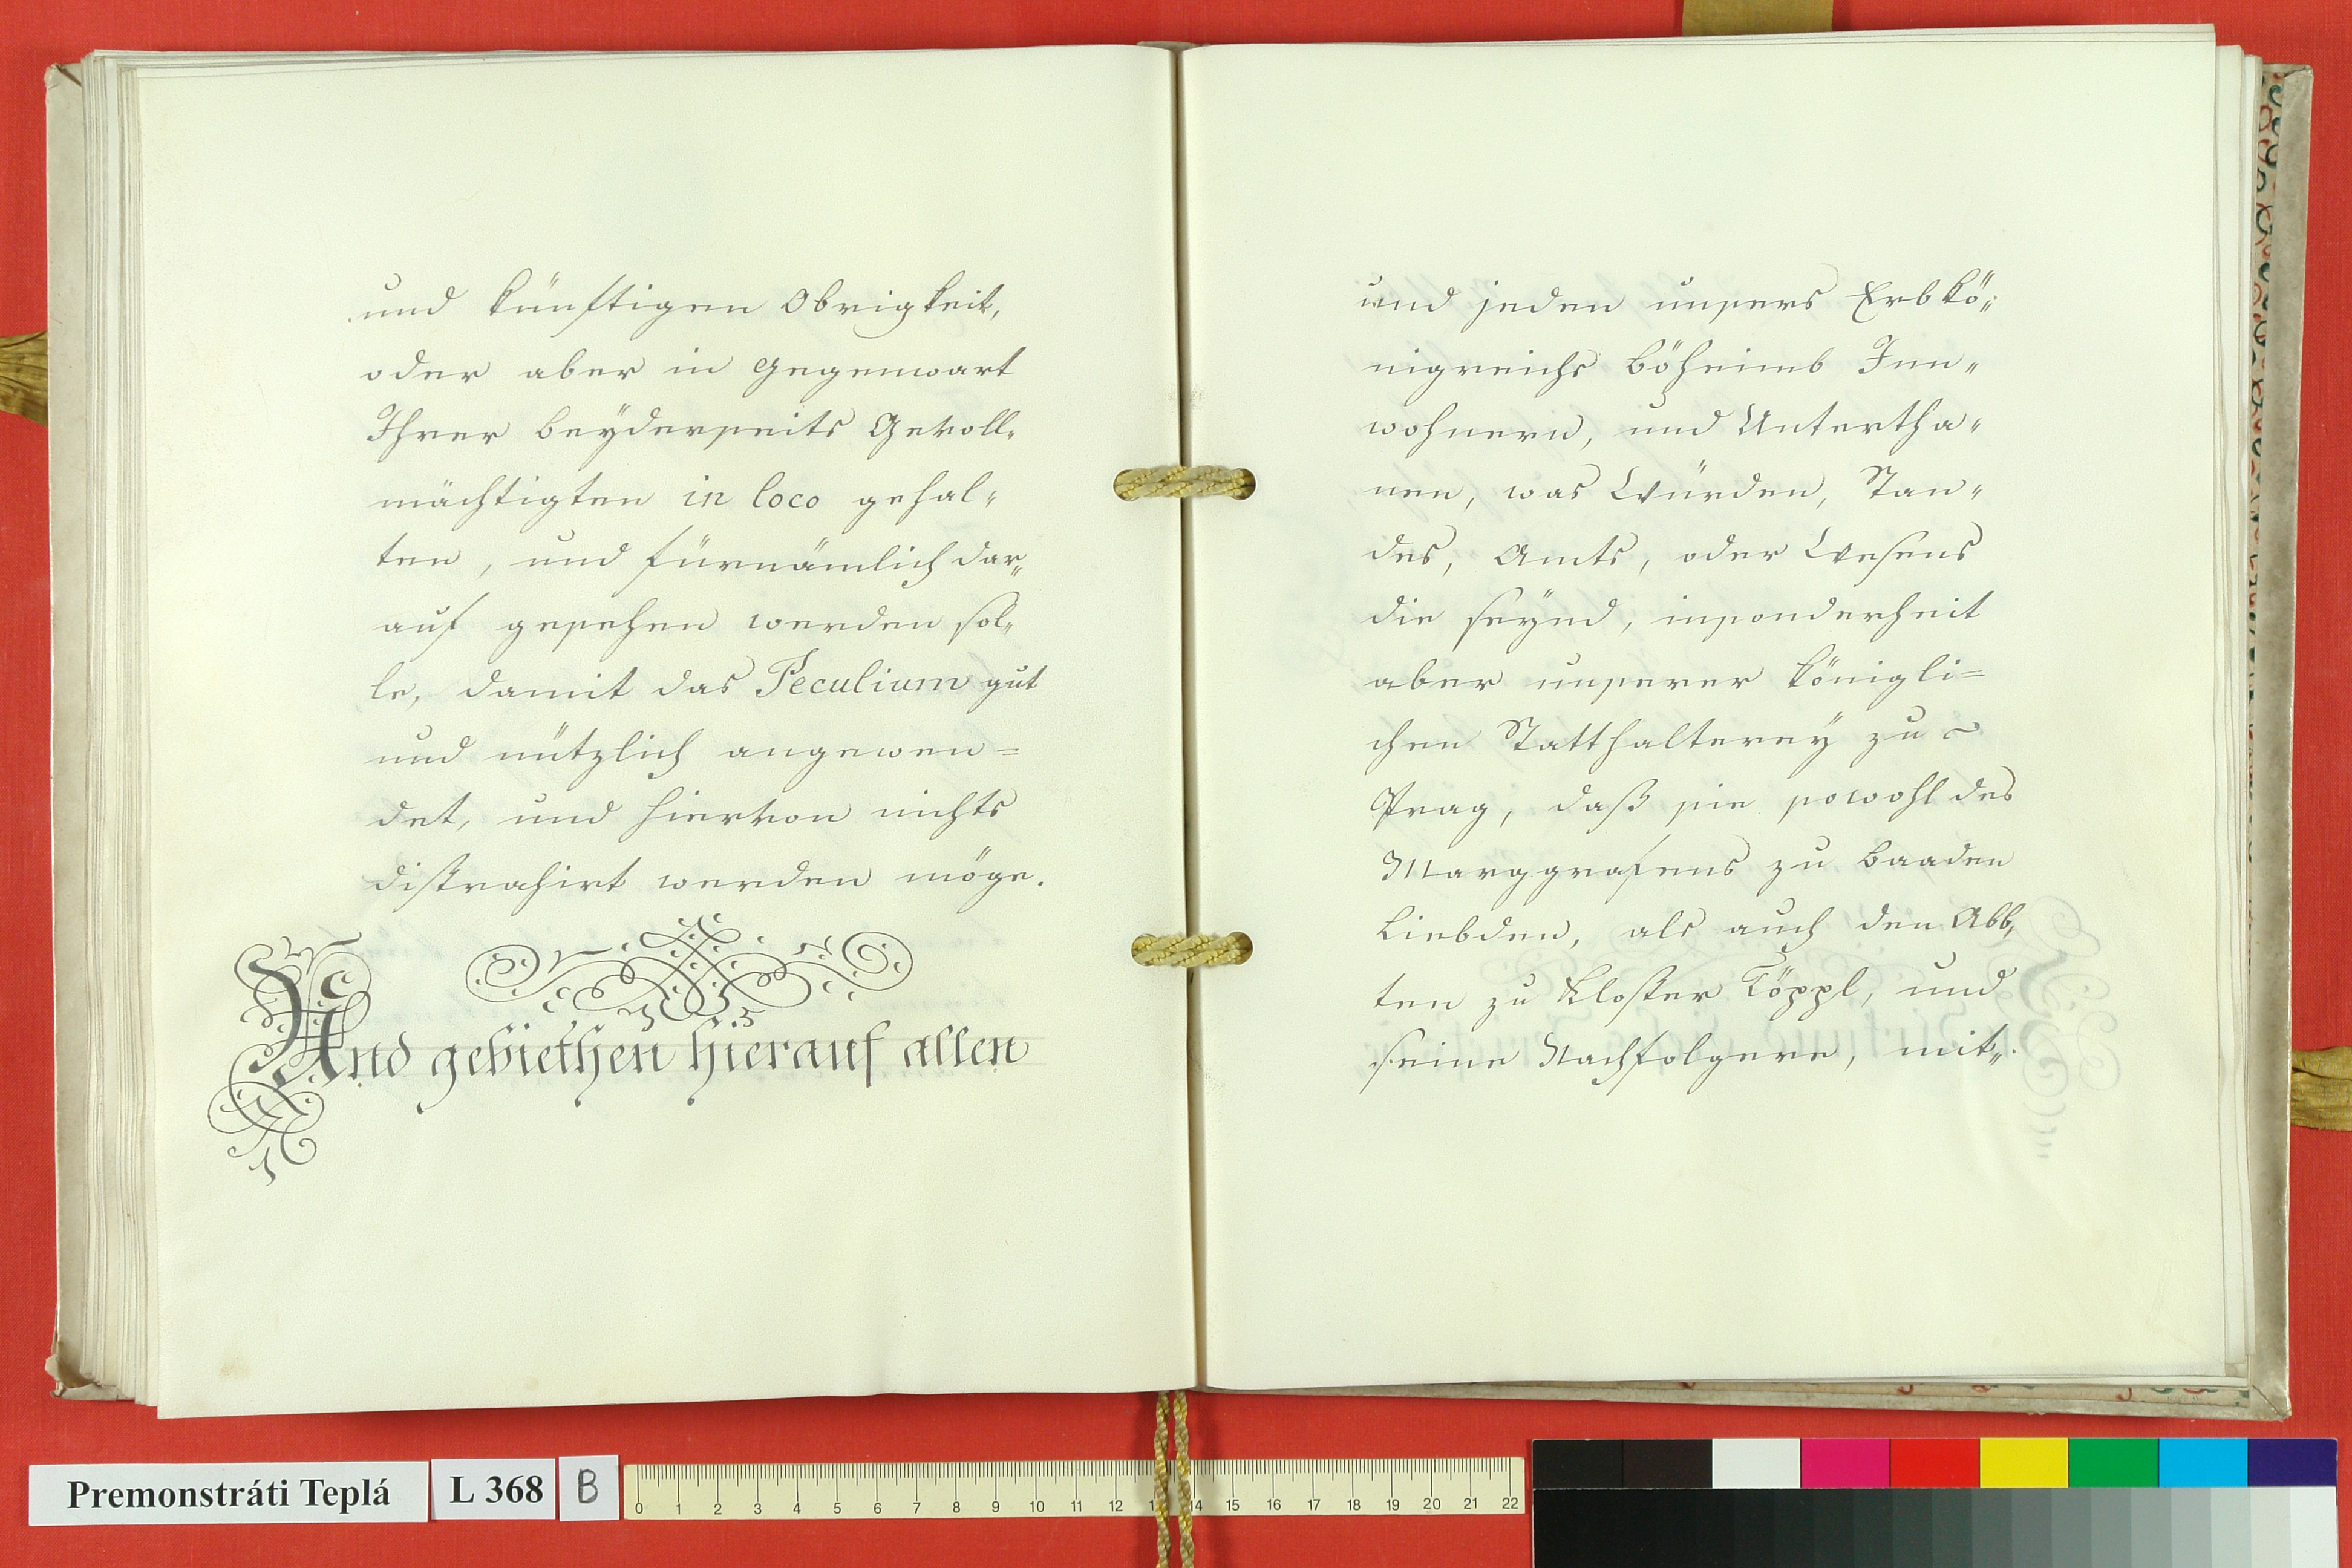 und künftigen Obrigkeit,
oder aber in gegenwart
Ihrer beyderseits Gevoll„
mächtigten in loco gehal„
ten, und fürnämlich dar„
auf gesehen werden sol„
le, damit das Peculium gut
und nützlich angewen=
det, und hiervon nichts
distrahirt werden möge.
Und gebiethen hierauf allen
und jeden unsers Erbkö„
nigreichs Böheimb Inn„
wohnern, und Untertha„
nen, was Würden, Stan„
des, Amts, oder Wesens
die seÿnd, insonderheit
aber unserer königli=
chen Statthalterey zu
Prag, daß sie sowohl des
Marggrafens zu Baaden
Liebden, als auch den Abb„
ten zu Kloster Töppl, und
seine Nachfolgere, mit„
Premonstráti Teplá L 368 B
0 1 2 3 4 5 6 7 8 9 10 11 12 13 14 15 16 17 18 19 20 21 22